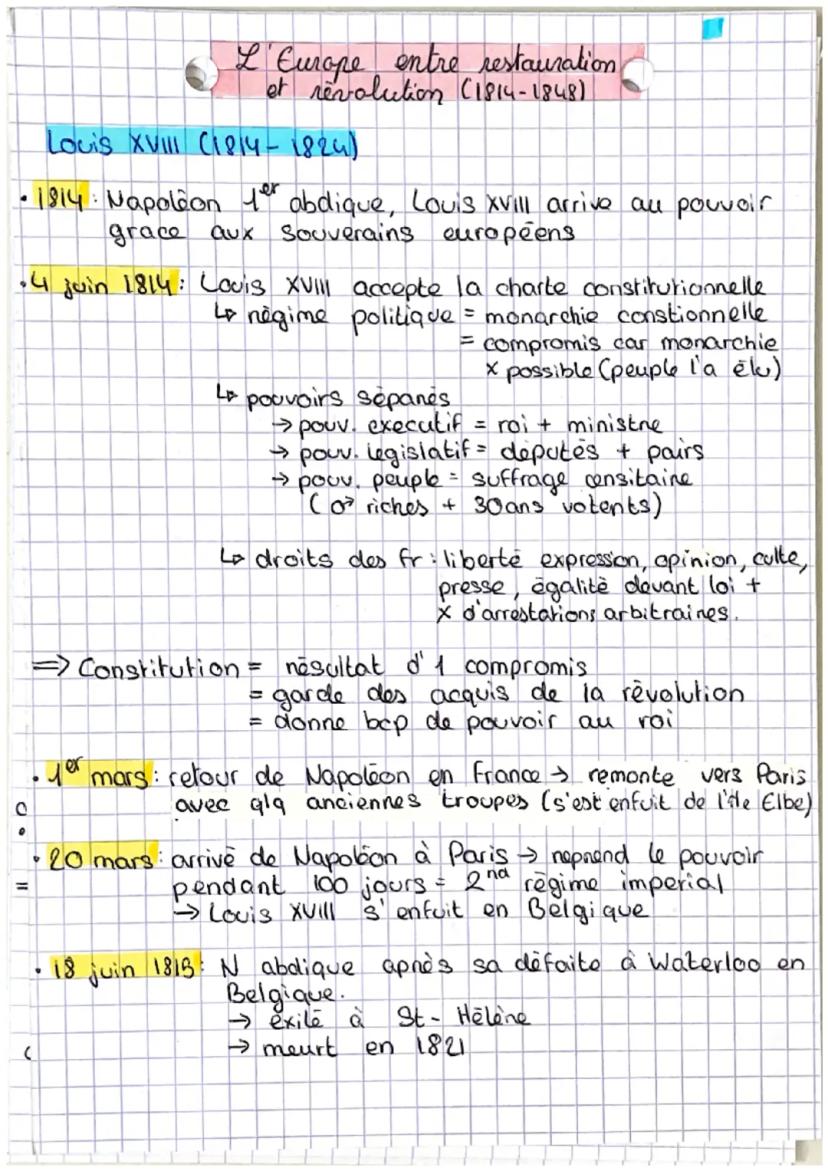 L'Europe entre restauration
et révolution (1814-1848)
Louis XVIII (1814-1824)
• 1814 : Napoléon 1er abdique, Louis XVIII arrive au pouvoir
grace aux souverains européens
• 4 juin 1814 : Louis XVIII accepte la charte constitutionnelle
↳ régime politique = monarchie constionnelle
= compromis car monarchie
x possible (peuple l'a élu)
↳ pouvoirs séparés
→ pouv. executif = roi + ministre
→ pouv. legislatif = députés + pairs
→ pouv. peuple = suffrage censitaire
(♂ riches + 30ans votents)
↳ droits des fr : liberté expression, opinion, culte,
presse, égalité devant loi +
x d'arrestations arbitraires.
⇒ Constitution = résultat d'1 compromis
= garde des acquis de la révolution
= donne bcp de pouvoir au roi
• 1er mars : retour de Napoléon en France → remonte vers Paris
avec qlq anciennes troupes (s'est enfuit de l'île Elbe)
• 20 mars : arrivé de Napoléon à Paris → reprend le pouvoir
pendant 100 jours = 2nd régime imperial
→ Louis XVIII s'enfuit en Belgique
• 18 juin 1815 : N abdique après sa défaite à Waterloo en
Belgique.
→ éxilé à St-Hélène
→ meurt en 1821